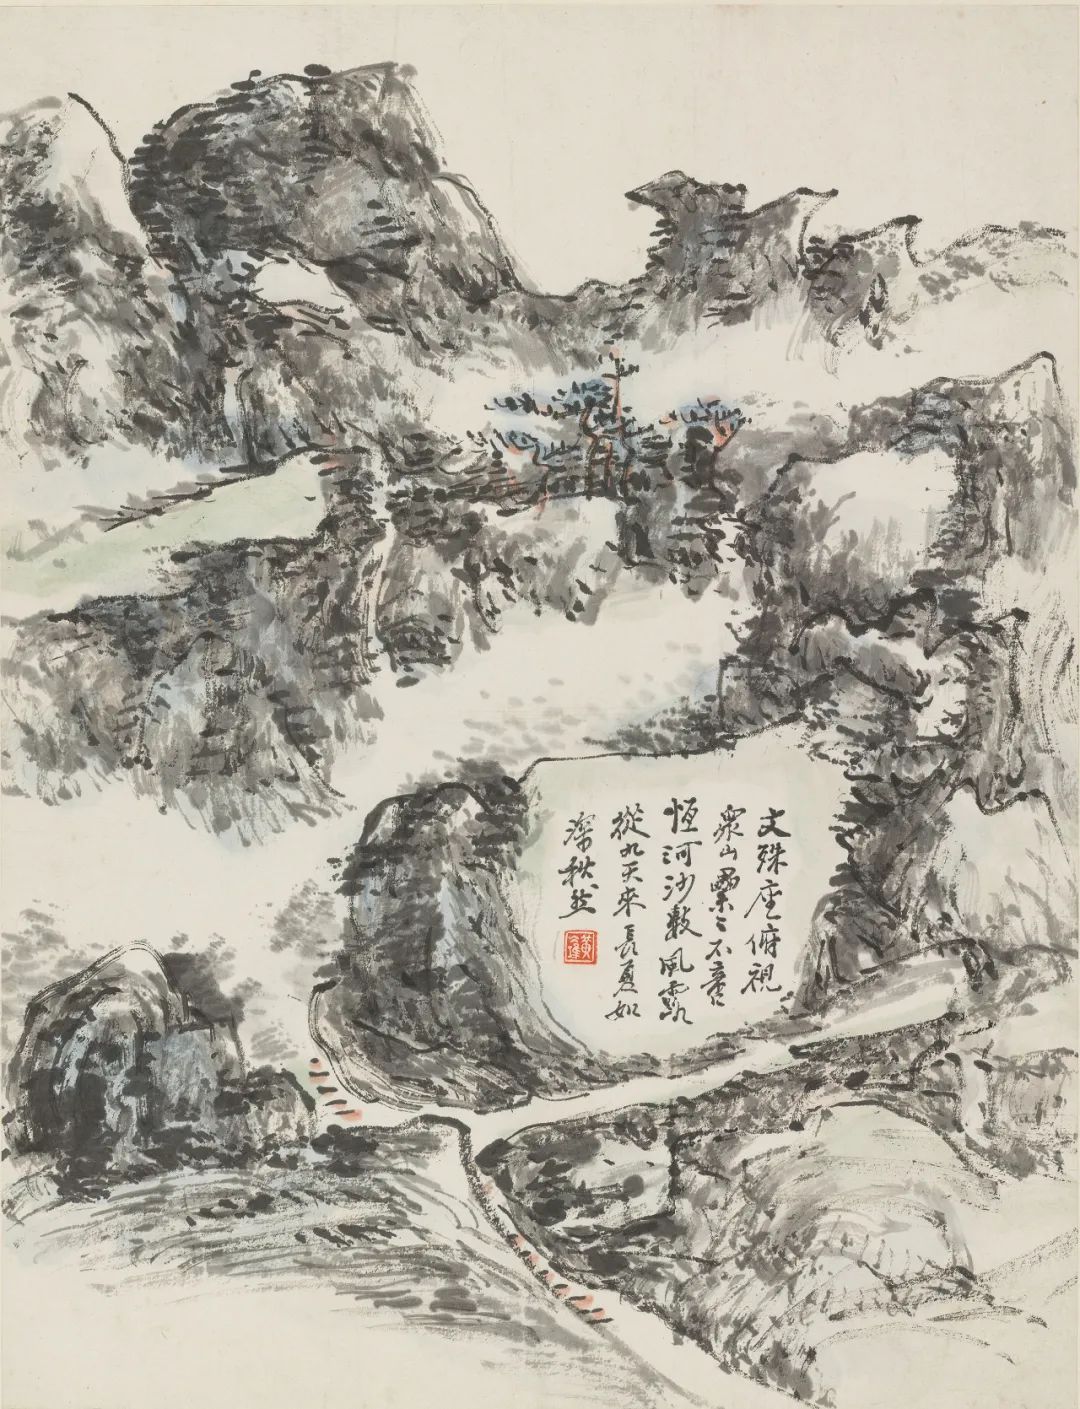 文殊座俯視
衆山纍纍不啻
恆河沙數風露
從九天來長夏如
深秋然
黃